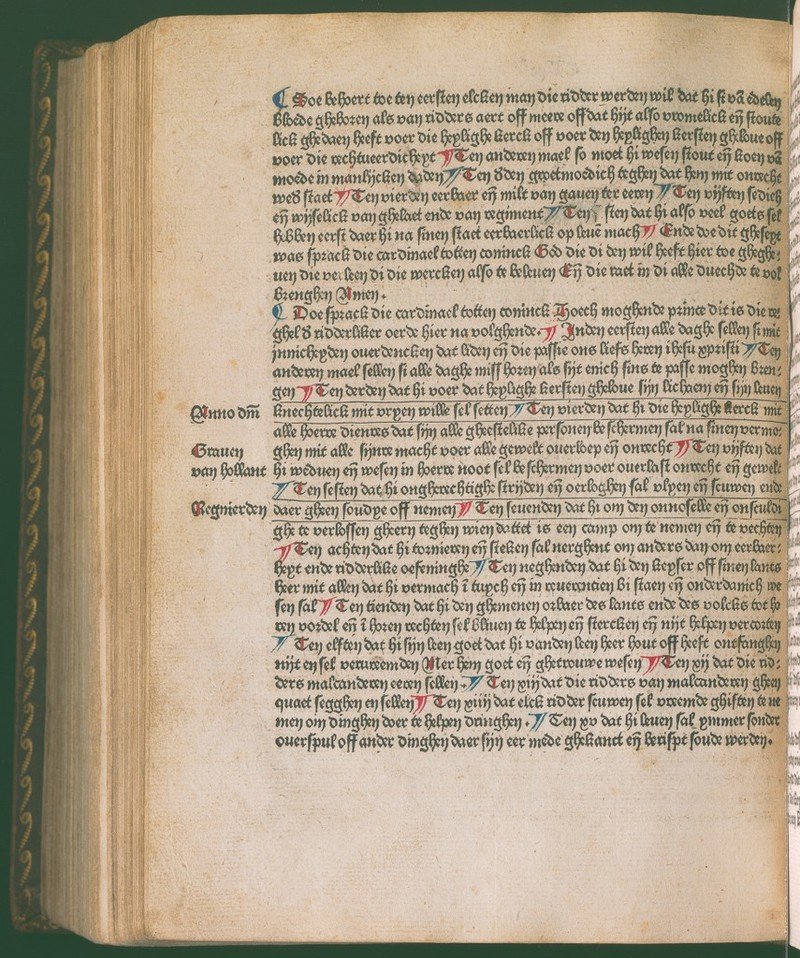 Soe behoert toe ten eersten elcken man die ridder werden wil dat hi si vā edelen
bloede gheboren als van ridders aert off meere off dat hijt also vromelick eñ stoute
lick ghedaen heeft voer die heylighe kerck off voer den heylighen kersten gheloue off
voer die rechtueerdicheyt Ten anderen mael so moet hi wesen stout eñ koen vā
moede in manlijcken daden Ten dden groetmoedich teghen dat hem mit onrecht
wed staet Ten vierden eerbaer eñ milt van gauen ter eeren Ten vijften sedich
eñ wijselick van ghelaet ende van regiment Ten sten dat hi also veel goets sel
hebben eerst daer hi na sinen staet eerbaerlick op leuē mach Ende doe dit gheseyt
was sprack die cardinael totten coninck God die di den wil heeft hier toe gheghe⸗
uen die verleen di die wercken also te beleuen Eñ die raet in di alle duechde te vol
brenghen Amen.
Doe sprack die cardinael totten coninck Hoech moghende prince dit is die re
ghel d ridderliker oerde hier na volghende. Inden eersten alle daghe sellen si mit
jnnicheyden ouerdencken dat liden eñ die passie ons liefs heren ihesu xpristi Ten
anderen mael sellen si alle daghe miss horen als sijt enich sins te passe moghen bren⸗
gen Ten derden dat hi voer dat heylighe kersten gheloue sijn lichaem eñ sijn leuen
Anno dm̄ knechtelick mit vryen wille sel setten Ten vierden dat hi die heylighe kerck mit
alle hoerre dienres dat sijn alle gheestelike personen beschermen sal na sinen vermo⸗
Grauen ghen mit alle sijnre macht voer alle gewelt ouerloep eñ onrecht Ten vijften dat
van hollant hi weduen eñ wesen in hoerre noot sel beschermen voer ouerlast onrecht eñ gewelt
Ten sesten dat hi ongherechtighe strijden eñ oerloghen sal vlyen eñ scuwen ende
Regnierden daer gheen soudye off nemen Ten seuenden dat hi om den onnoselle eñ onsculdi
ghe te verlossen gheern teghen wien dattet is een camp om te nemen eñ te vechten
Ten achten dat hi tornieren eñ steken sal nerghent om anders dan om eerbaer⸗
heyt ende ridderlike oefeninghe Ten neghenden dat hi den keyser off sinen lants
heer mit allen dat hi vermach ī tuych eñ in reuerencien bi staen eñ onderdanich we
sen sal Ten tienden dat hi den ghemenen orbaer des lants ende des volcks tot ho
ren vordel eñ ī horen rechten sel bliuen te helpen eñ stercken eñ nijt helpen vercorten
Ten elften dat hi sijn leen goet dat hi vanden leen heer hout off heeft ontfanghen
nijt en sel verureemden Mer hem goet eñ ghetrouwe wesen Ten xij dat die rid⸗
ders malcanderen eeren sellen. Ten xiij dat die ridders van malcanderen gheen
quaet segghen en sellen Ten xiiij dat elck ridder scuwen sel vreemde ghiften te ne
men om dinghen doer te helpen dringhen. Ten xv dat hi leuen sal ymmer sonder
ouerspul off ander dinghen daer sijn eer mede ghekanct eñ berispt soude werden.